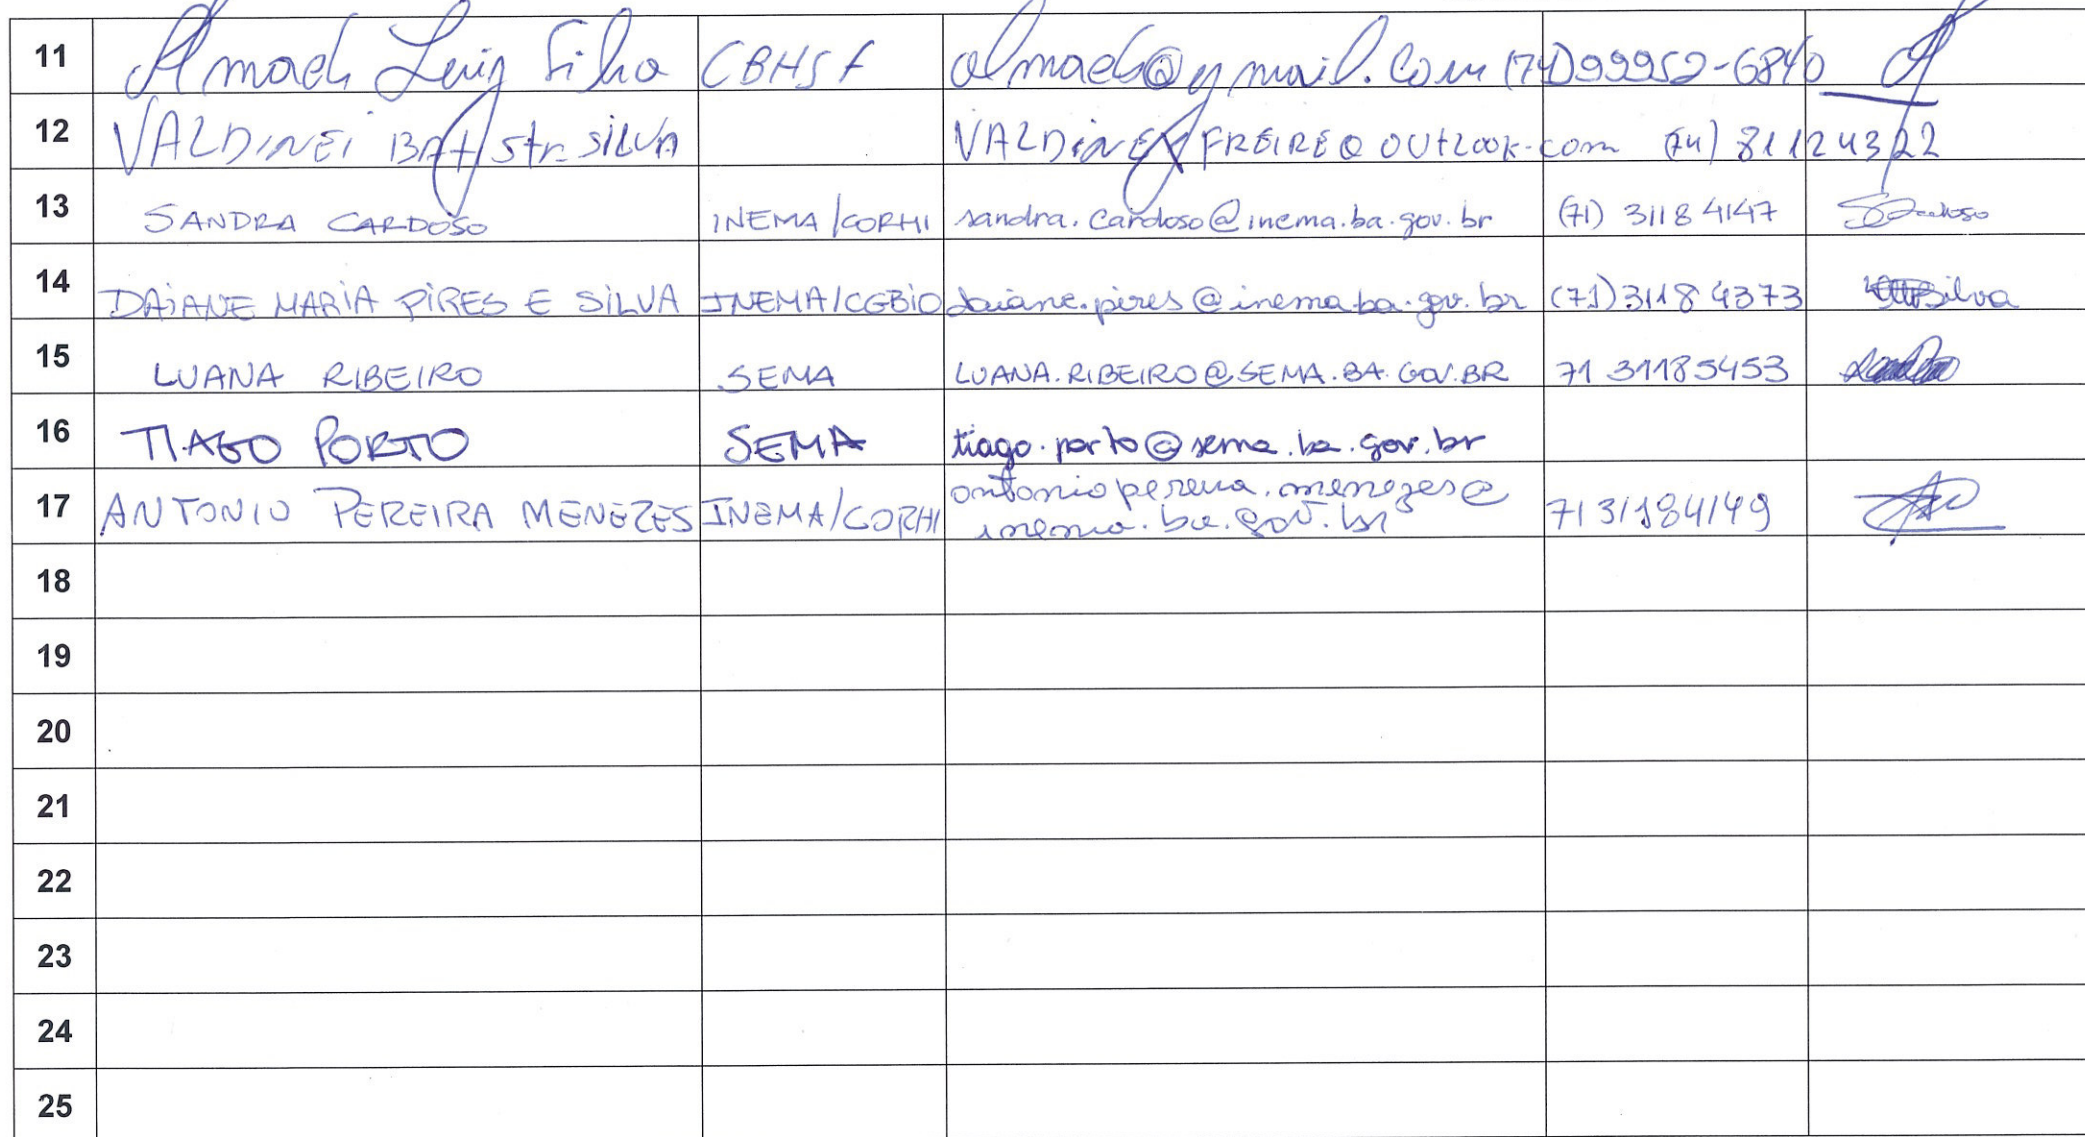 11 Almack Luiz Silva CBHSF almack@gmail.com (74)99952-6840
12 VALDINEI BAtistA SILVA VALDINEYFREIRE@OUTLOOK.com (74) 81124322
13 SANDRA CARDOSO INEMA/CORHI sandra.cardoso@inema.ba.gov.br (71) 3118 4147
14 DAIANE MARIA PIRES E SILVA INEMA/CGBIO daiane.pires@inema.ba.gov.br (71)3118 4373
15 LUANA RIBEIRO SEMA LUANA.RIBEIRO@SEMA.BA.GOV.BR 71 31185453
16 TIAGO PORTO SEMA tiago.porto@sema.ba.gov.br
17 ANTONIO PEREIRA MENEZES INEMA/CORHI antoniopereira.menezes@ 71 31184149
inema.ba.gov.br
18
19
20
21
22
23
24
25